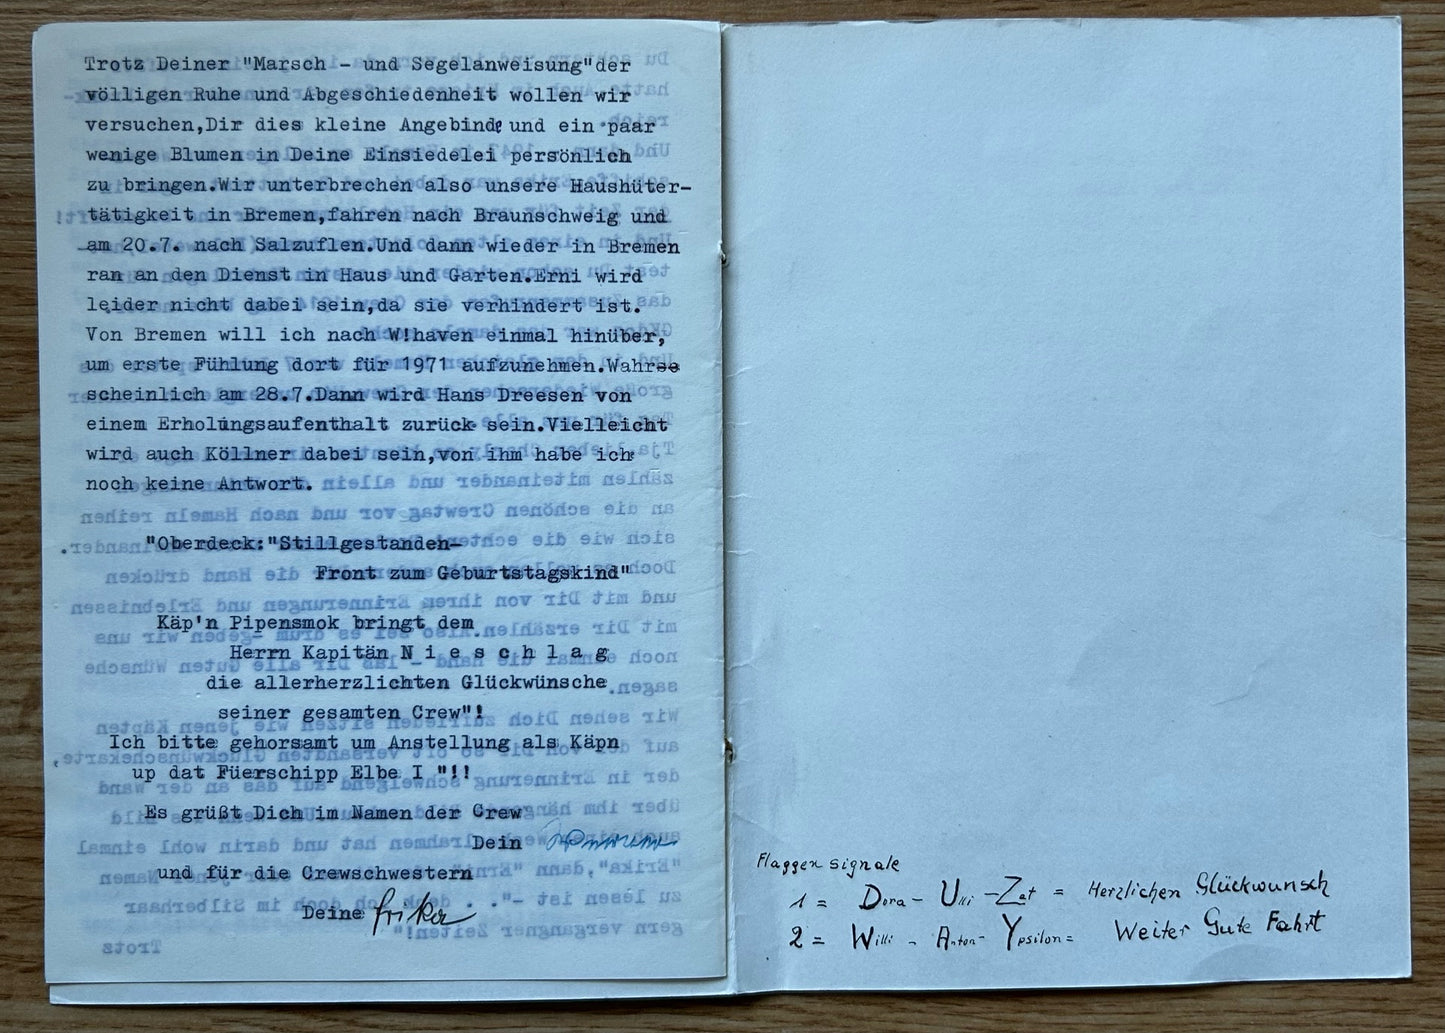 Trotz Deiner "Marsch - und Segelanweisung"der
völligen Ruhe und Abgeschiedenheit wollen wir
versuchen,Dir dies kleine Angebinde und ein paar
wenige Blumen in Deine Einsiedelei persönlich
zu bringen.Wir unterbrechen also unsere Haushüter-
tätigkeit in Bremen,fahren nach Braunschweig und
am 20.7. nach Salzuflen.Und dann wieder in Bremen
ran an den Dienst in Haus und Garten.Erni wird
leider nicht dabei sein,da sie verhindert ist.
Von Bremen will ich nach W!haven einmal hinüber,
um erste Fühlung dort für 1971 aufzunehmen.Wahrse
scheinlich am 28.7.Dann wird Hans Dreesen von
einem Erholungsaufenthalt zurück sein.Vielleicht
wird auch Köllner dabei sein,von ihm habe ich
noch keine Antwort.
"Oberdeck:"Stillgestanden-
Front zum Geburtstagskind"
Käp'n Pipensmok bringt dem
Herrn Kapitän N i e s c h l a g
die allerherzlichten Glückwünsche
seiner gesamten Crew"!
Ich bitte gehorsamt um Anstellung als Käpn
up dat Füerschipp Elbe I "!!
Es grüßt Dich im Namen der Crew
Dein
und für die Crewschwestern
Deine Erika
Flaggensignale
1 = Dora - Ulli - Zet = Herzlichen Glückwunsch
2 = Willi - Anton - Ypsilon = Weiter Gute Fahrt